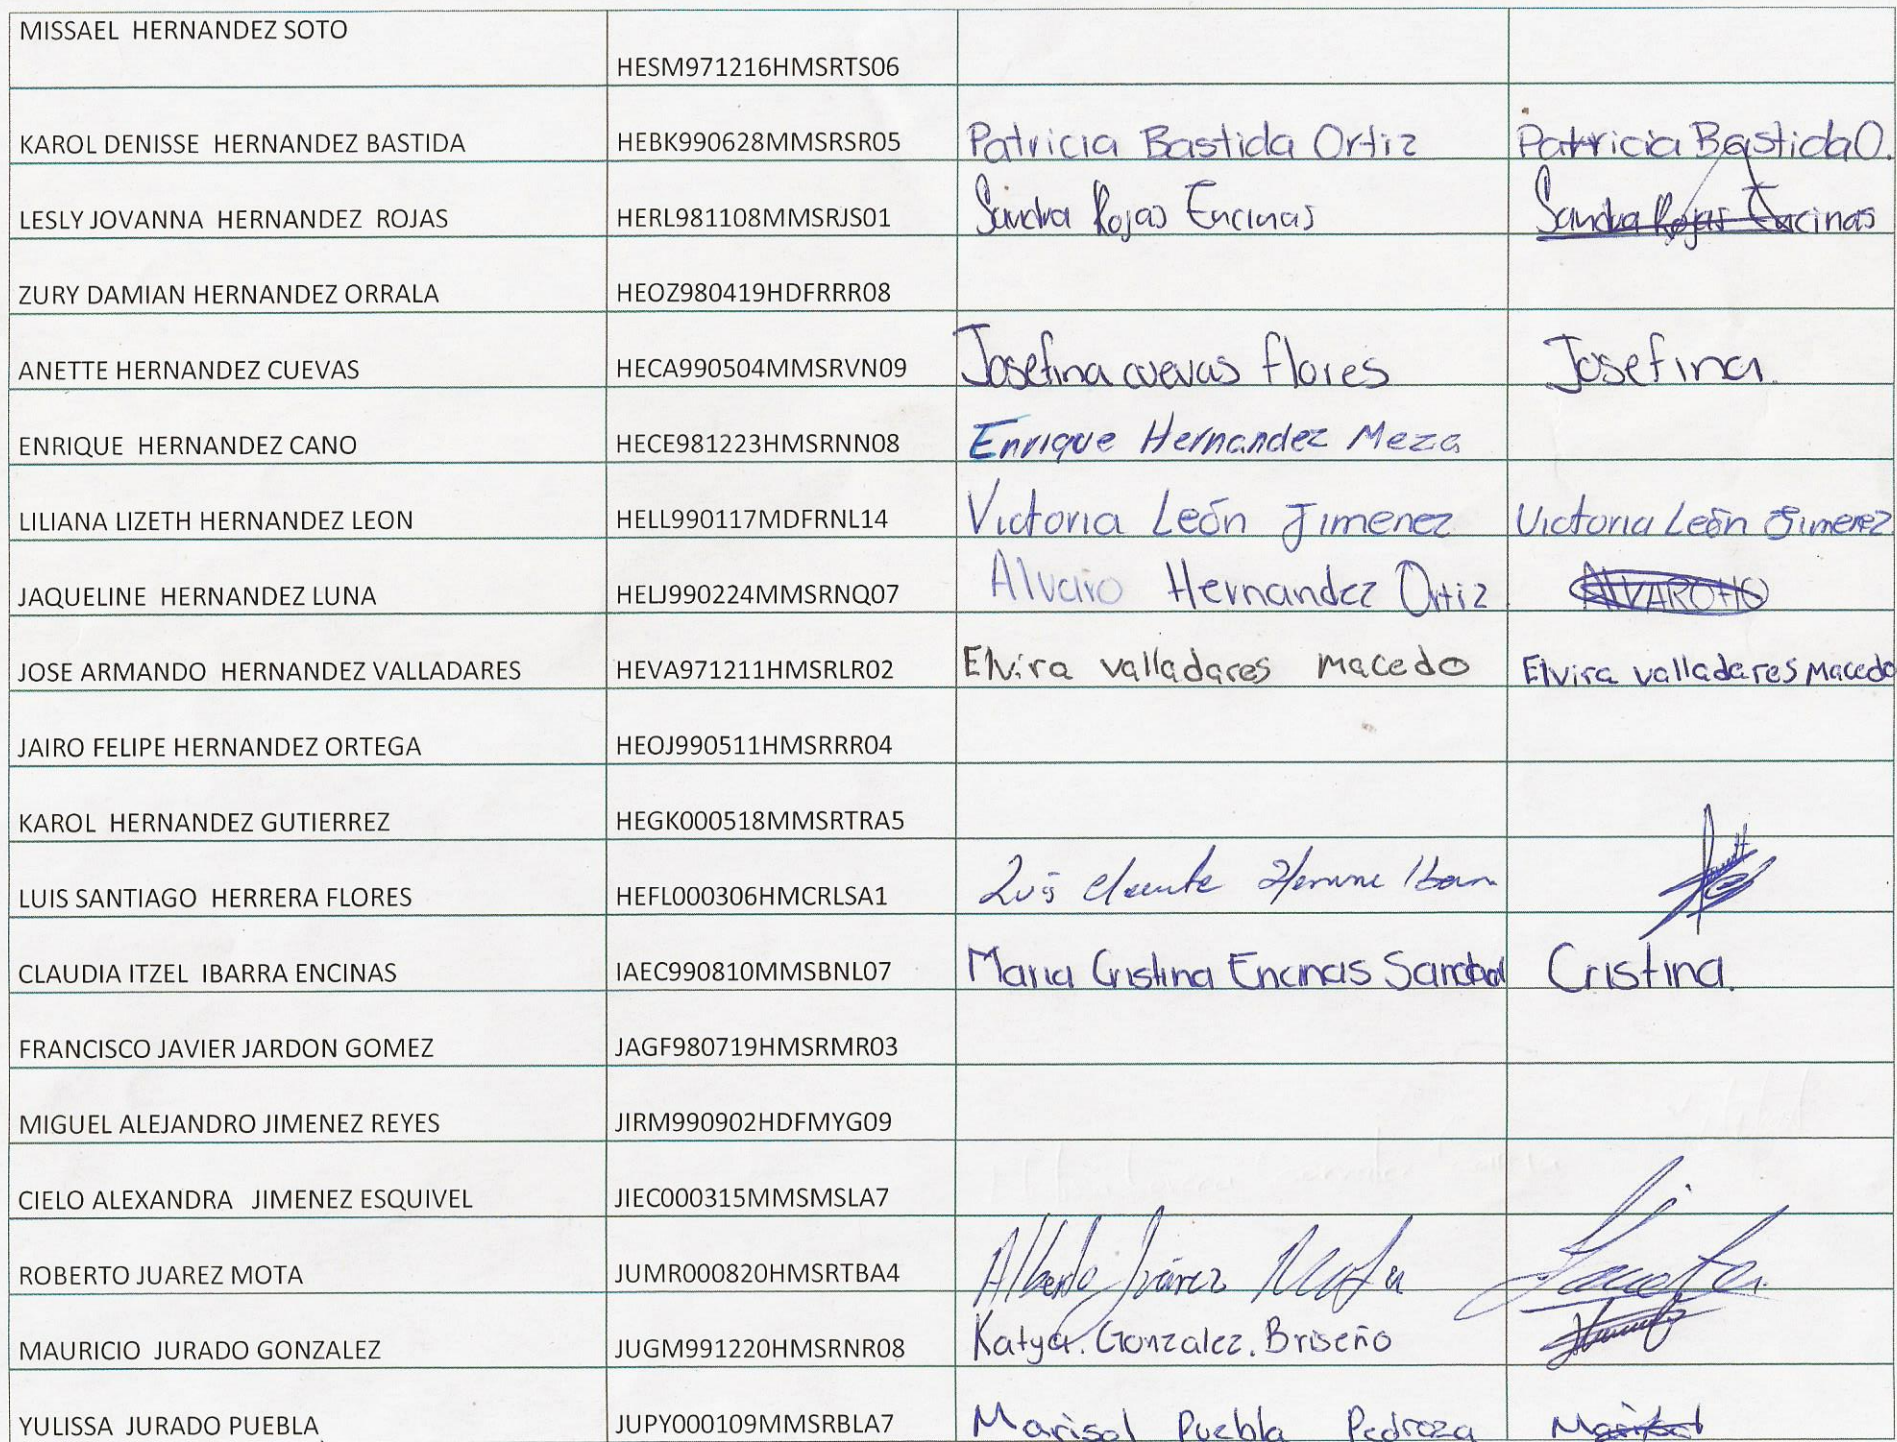 MISSAEL HERNANDEZ SOTO HESM971216HMSRTS06
KAROL DENISSE HERNANDEZ BASTIDA HEBK990628MMSRSR05 Patricia Bastida Ortiz Patricia Bastida O.
LESLY JOVANNA HERNANDEZ ROJAS HERL981108MMSRJS01 Sandra Rojas Encinas Sandra Rojas Encinas
ZURY DAMIAN HERNANDEZ ORRALA HEOZ980419HDFRRR08
ANETTE HERNANDEZ CUEVAS HECA990504MMSRVN09 Josefina cuevas flores Josefina.
ENRIQUE HERNANDEZ CANO HECE981223HMSRNN08 Enrique Hernandez Meza
LILIANA LIZETH HERNANDEZ LEON HELL990117MDFRNL14 Victoria León Jimenez Victoria León Jimenez
JAQUELINE HERNANDEZ LUNA HELJ990224MMSRNQ07 Alvaro Hernandez Ortiz ALVAROHO
JOSE ARMANDO HERNANDEZ VALLADARES HEVA971211HMSRLR02 Elvira valladares macedo Elvira valladares Macedo
JAIRO FELIPE HERNANDEZ ORTEGA HEOJ990511HMSRRR04
KAROL HERNANDEZ GUTIERREZ HEGK000518MMSRTRA5
LUIS SANTIAGO HERRERA FLORES HEFL000306HMCRLSA1 Luis
CLAUDIA ITZEL IBARRA ENCINAS IAEC990810MMSBNL07 Maria Cristina Encinas Cristina.
FRANCISCO JAVIER JARDON GOMEZ JAGF980719HMSRMR03
MIGUEL ALEJANDRO JIMENEZ REYES JIRM990902HDFMYG09
CIELO ALEXANDRA JIMENEZ ESQUIVEL JIEC000315MMSMSLA7
ROBERTO JUAREZ MOTA JUMR000820HMSRTBA4 Alberto Juárez Mota
MAURICIO JURADO GONZALEZ JUGM991220HMSRNR08 Katya. Gonzalez. Briseño
YULISSA JURADO PUEBLA JUPY000109MMSRBLA7 Marisol Puebla Pedroza Marisol